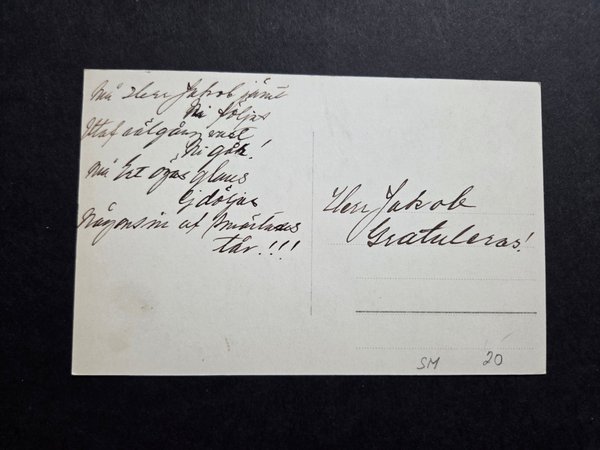 Må Herr Jakob jämt
Ni följas
Utaf välgång vart
Ni går!
Må Ert ögas glans
Ej döljas
Någonsin af smärtans
tår!!!
Herr Jakob
Gratuleras!
SM 20